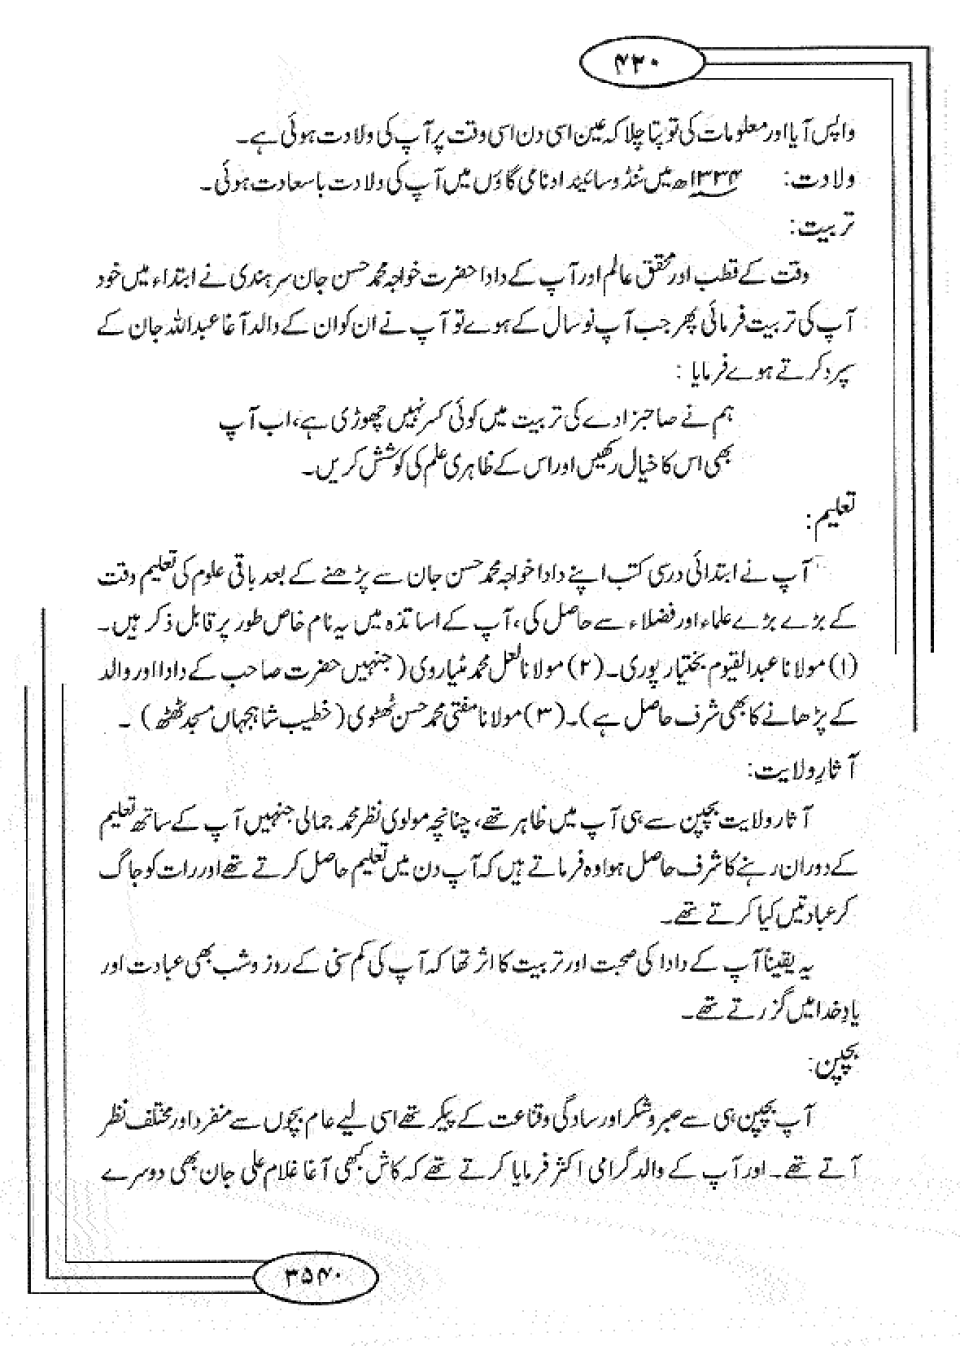 ۴۲۰
واپس آیا اور معلومات کی تو پتا چلا کہ عین اسی دن اسی وقت پر آپ کی ولادت ہوئی ہے۔
ولادت: ۱۳۳۴ھ میں ٹنڈو سائینداد نامی گاؤں میں آپ کی ولادت باسعادت ہوئی۔
تربیت:
وقت کے قطب اور محقق عالم اور آپ کے دادا حضرت خواجہ محمد حسن جان سرہندی نے ابتداء میں خود
آپ کی تربیت فرمائی پھر جب آپ نو سال کے ہوے تو آپ نے ان کو ان کے والد آغا عبداللہ جان کے
سپرد کرتے ہوے فرمایا :
ہم نے صاحبزادے کی تربیت میں کوئی کسر نہیں چھوڑی ہے، اب آپ
بھی اس کا خیال رکھیں اور اس کے ظاہری علم کی کوشش کریں۔
تعلیم:
آپ نے ابتدائی درسی کتب اپنے دادا خواجہ محمد حسن جان سے پڑھنے کے بعد باقی علوم کی تعلیم وقت
کے بڑے بڑے علماء اور فضلاء سے حاصل کی، آپ کے اساتذہ میں یہ نام خاص طور پر قابل ذکر ہیں۔
(۱) مولانا عبدالقیوم بختیارپوری۔ (۲) مولانا لعل محمد مٹیاروی (جنہیں حضرت صاحب کے دادا اور والد
کے پڑھانے کا بھی شرف حاصل ہے)۔ (۳) مولانا مفتی محمد حسن ٹھٹوی (خطیب شاہجہاں مسجد ٹھٹھ) ۔
آثارِ ولایت:
آثار ولایت بچپن سے ہی آپ میں ظاہر تھے، چنانچہ مولوی نظر محمد جمالی جنہیں آپ کے ساتھ تعلیم
کے دوران رہنے کا شرف حاصل ہوا وہ فرماتے ہیں کہ آپ دن میں تعلیم حاصل کرتے تھے اور رات کو جاگ
کر عبادتیں کیا کرتے تھے۔
یہ یقیناً آپ کے دادا کی صحبت اور تربیت کا اثر تھا کہ آپ کی کم سنی کے روز و شب بھی عبادت اور
یادِ خدا میں گزرتے تھے۔
بچپن:
آپ بچپن ہی سے صبر و شکر اور سادگی و قناعت کے پیکر تھے اسی لیے عام بچوں سے منفرد اور مختلف نظر
آتے تھے۔ اور آپ کے والد گرامی اکثر فرمایا کرتے تھے کہ کاش کبھی آغا غلام علی جان بھی دوسرے
۳۵۴۰